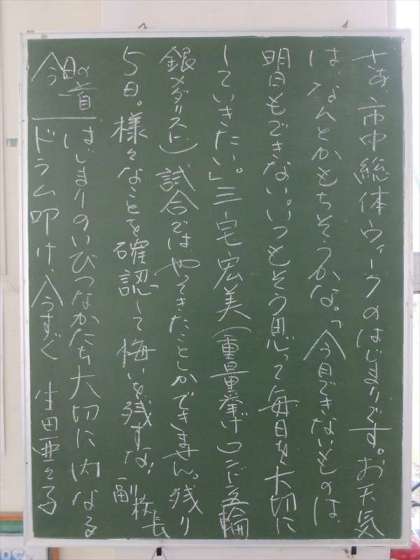 さあ市中総体ウィークのはじまりです。お天気
は、なんとかもちそうかな。「今日できないものは、
明日もできない。いつもそう思って毎日を大切に
していきたい。」三宅宏美（重量挙げロンドン五輪
銀メダリスト）試合ではやってきたことしかできません。残り
5日。様々なことを確認して悔いを残すな！副校長
今日の一首 はじまりのいびつなかたち大切に内なる
ドラム叩け、今すぐ 生田亜々子